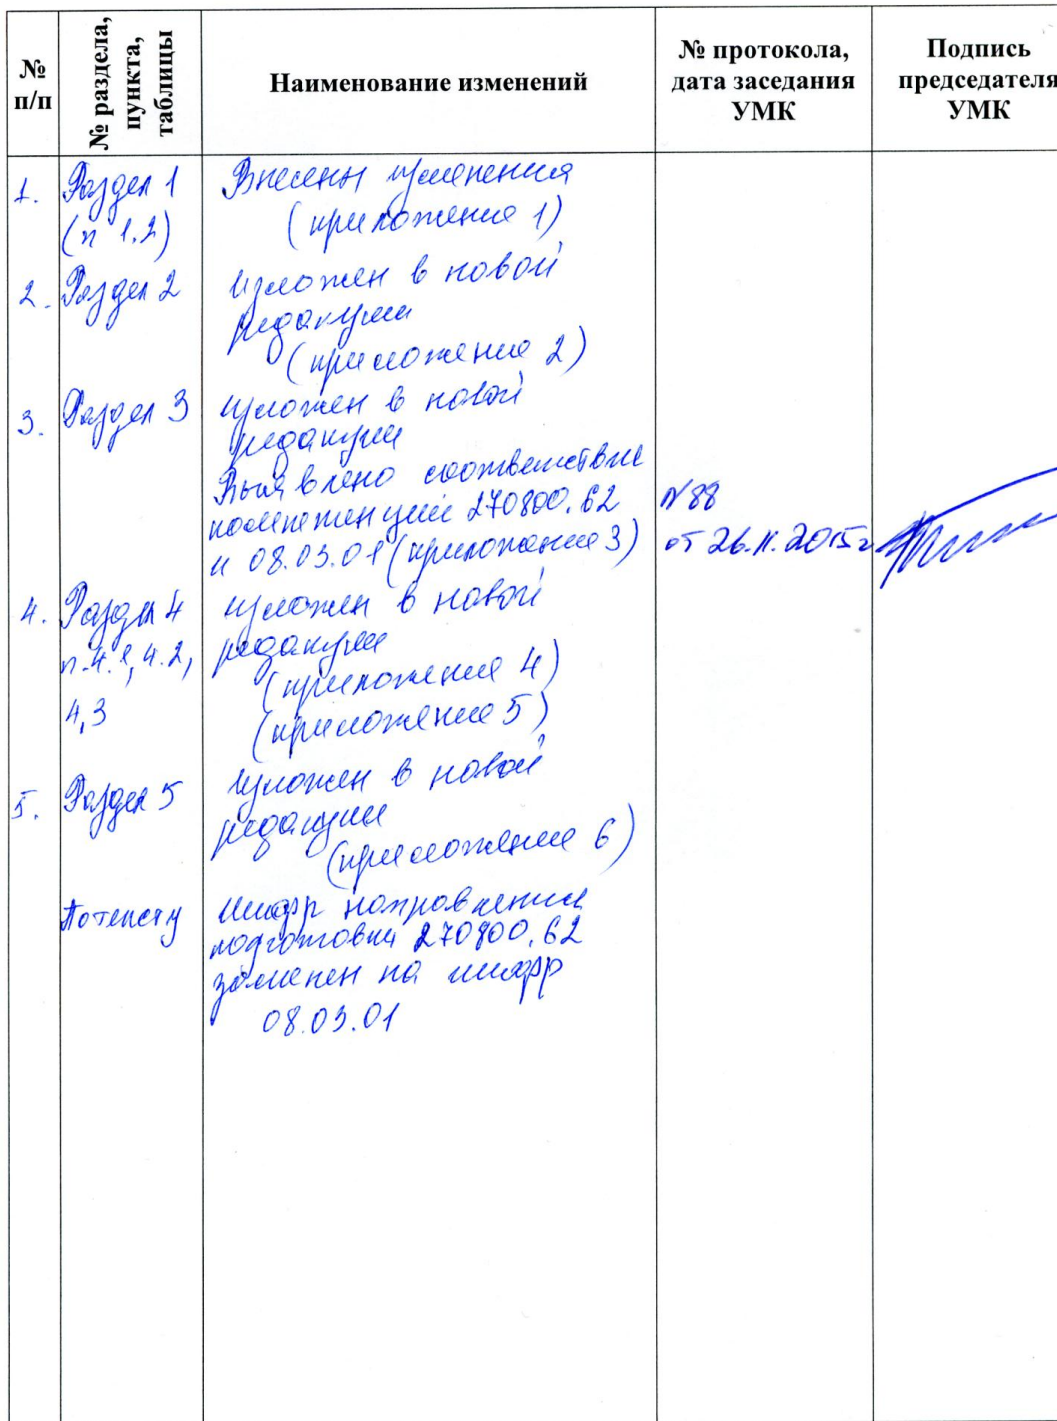 № п/п
№ раздела, пункта, таблицы
Наименование изменений
№ протокола, дата заседания УМК
Подпись председателя УМК
1. Раздел 1 (п 1.2)
Внесены изменения
(приложение 1)
2. Раздел 2
изложен в новой
редакции
(приложение 2)
3. Раздел 3
изложен в новой
редакции
Выявлено соответствие
компетенций 270800.62
и 08.03.01 (приложение 3)
№88
от 26.11.2015г
4. Раздел 4
п.4.1, 4.2,
4,3
изложен в новой
редакции
(приложение 4)
(приложение 5)
5. Раздел 5
изложен в новой
редакции
(приложение 6)
По тексту
Шифр направления
подготовки 270800.62
заменен на шифр
08.03.01